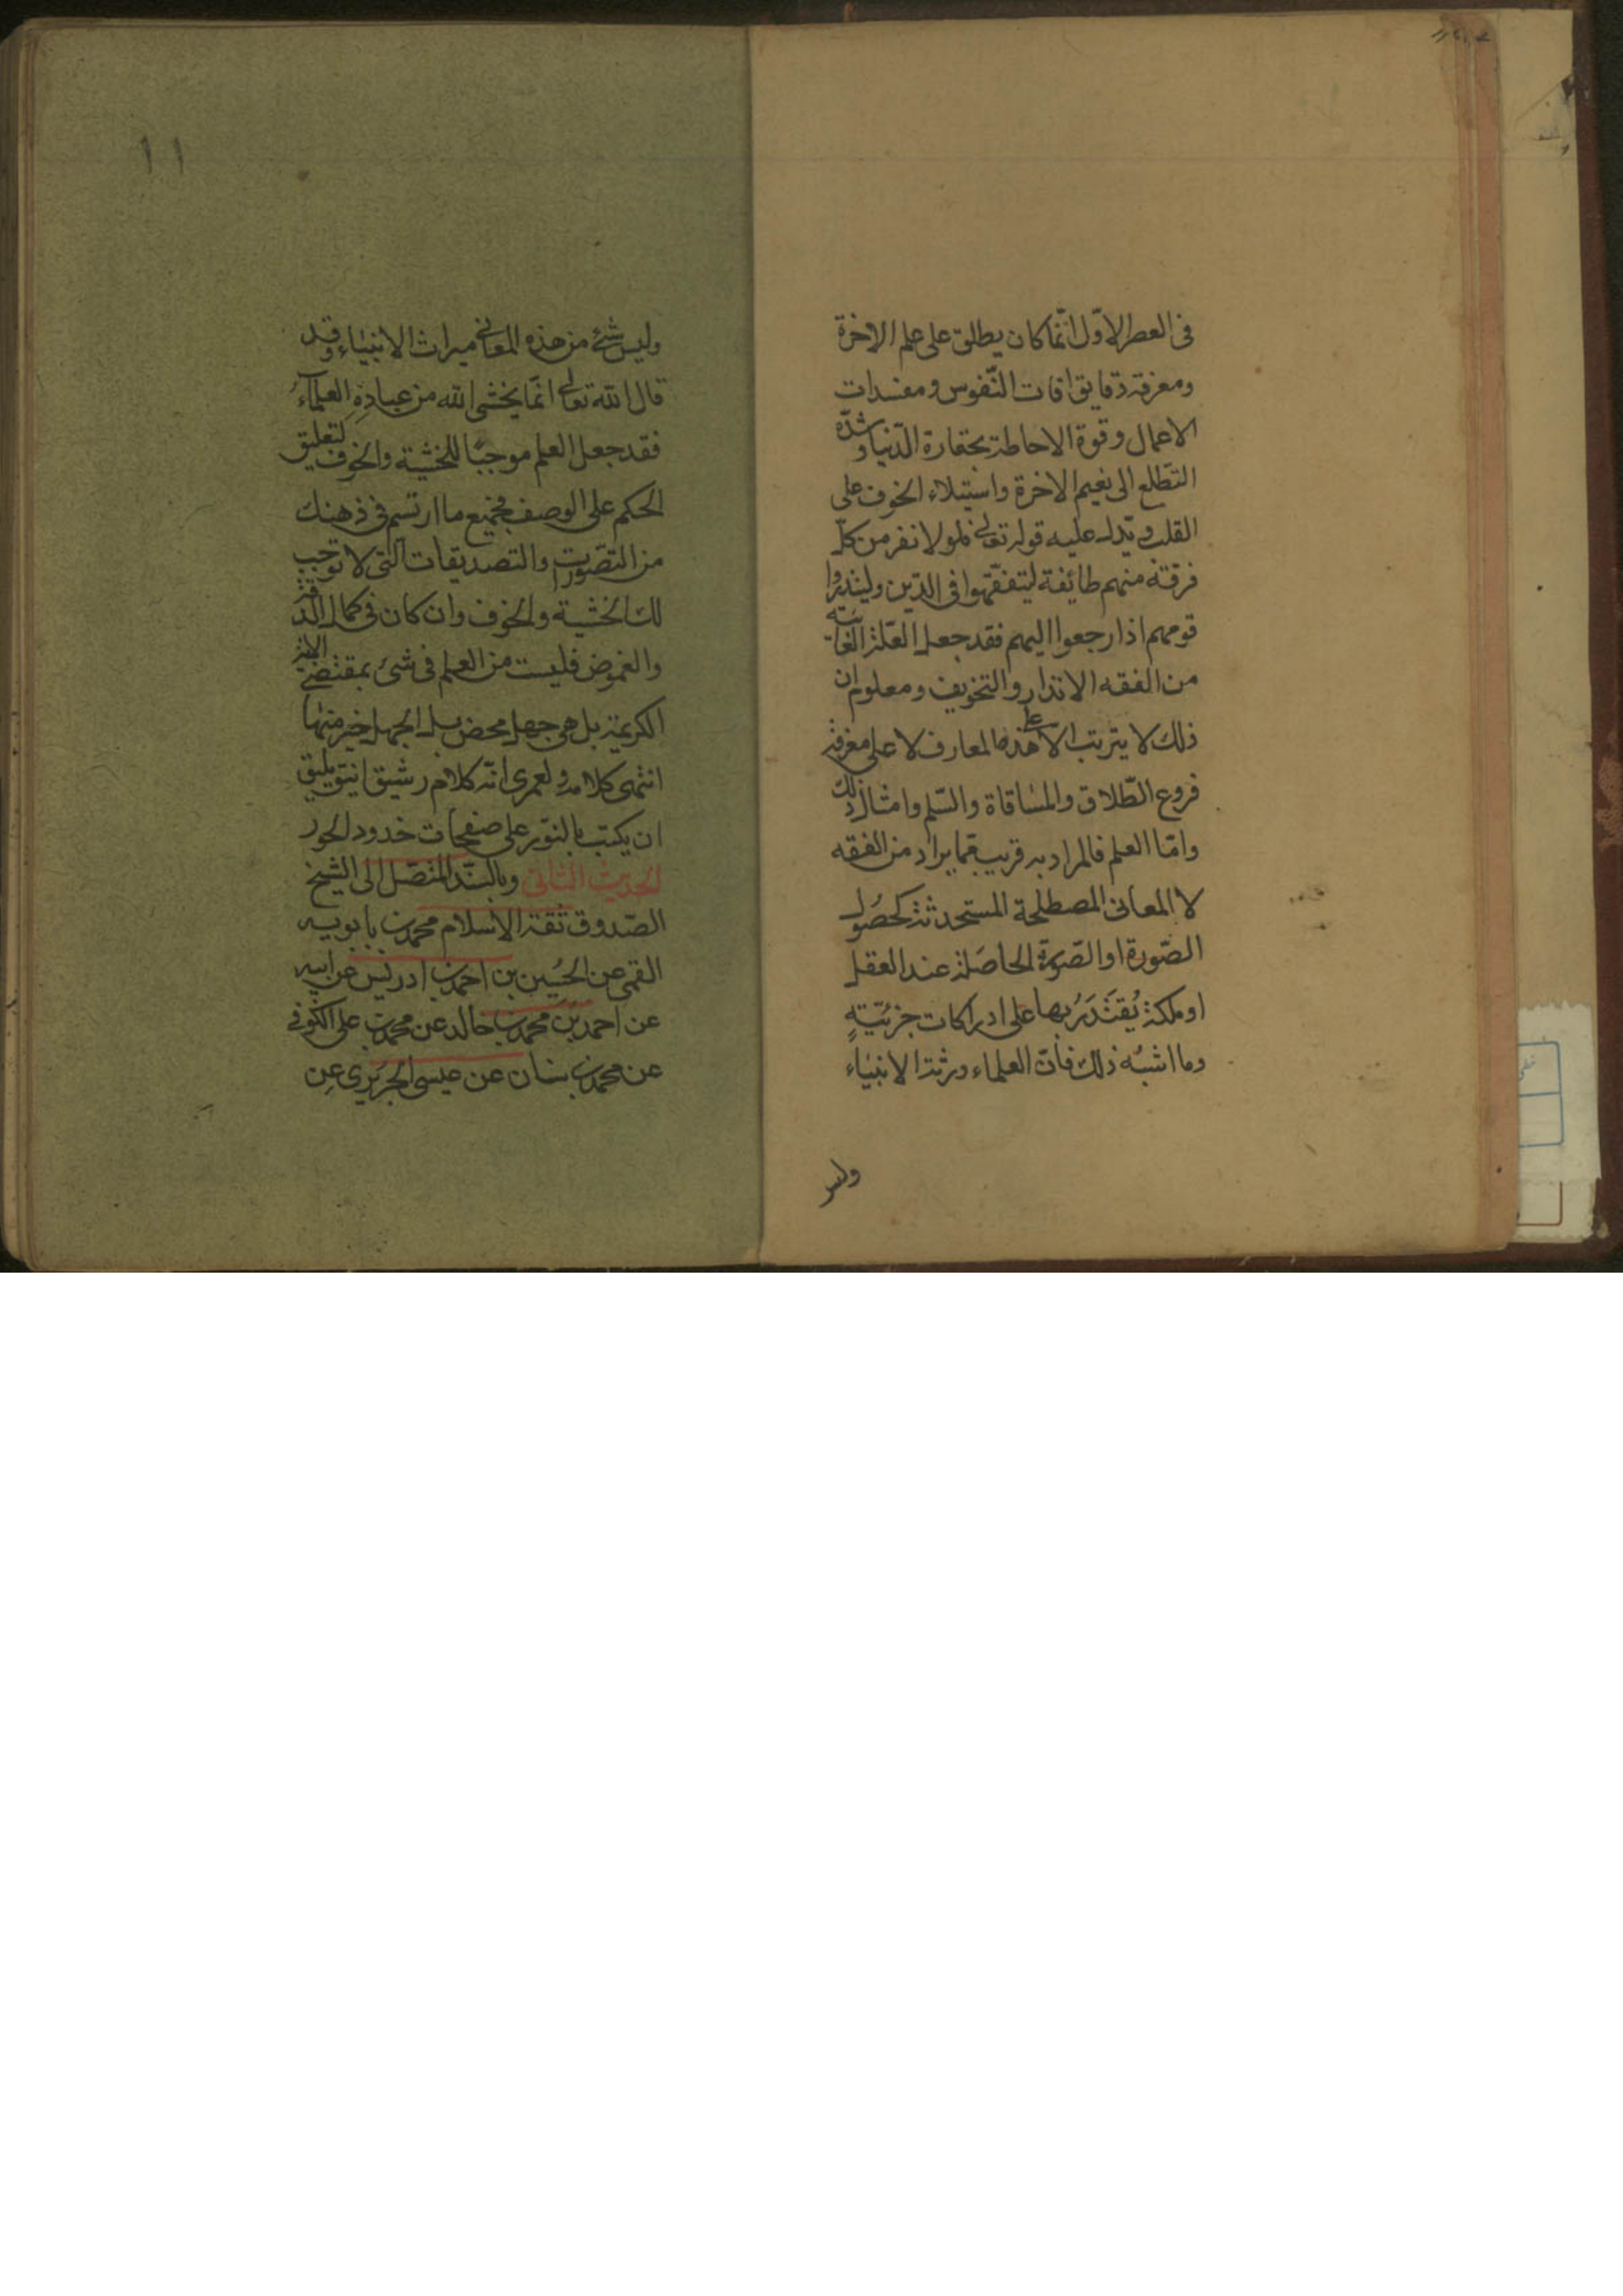 فى العصر الاوّل انّما كان يطلق على علم الاخرة
ومعرفة دقايق افات النّفوس ومفسدات
الاعمال وقوة الاحاطة بحقارة الدّنيا وشدّة
التّطلع الى نعيم الاخرة واستيلاء الخوف على
القلب ويّدل عليه قوله تعالى فلولا نفر من كلّ
فرقة منهم طائفة ليتفقّهوا فى الدّين ولينذروا
قومهم اذا رجعوا اليهم فقد جعل العلّة الغائية
من الفقه الانذار والتخويف ومعلوم ان
ذلك لا يترتب الّا على هذه المعارف لا على معرفة
فروع الطّلاق والمساقاة والسّلم وامثال ذلك
وامّا العلم فالمراد به قريب ممّا يراد من الفقه
لا المعانى المصطلحة المستحدثة كحصُول
الصّورة او الصّورة الحاصَلة عند العقل
او ملكة يُقتَدَرُ بها على ادراكات جزئيّةٍ
وما اشبُه ذلك فانّ العلماء ورثة الانبيٰاء
وليس
١١
وليس شئ من هذه المعانى ميراث الانبيٰاء وقد
قال الله تعالى انّما يخشى الله من عبادِهِ العلمآءُ
فقد جعل العلم موجبًا للخشية والخوف لتعليق
الحكم على الوصف فجميع ما ارتسم فى ذهنك
من التصّورات والتصديقات الّتى لا توجب
لك الخشية والخوف وان كان فى كمال الدقّة
والغموض فليست من العلم فى شئ بمقتضى الاية
الكريمة بل هى جهل محض بل الجهل خير منها
انتهى كلامه ولعمرى انّه كلام رشيق انيق يليق
ان يكتب بالنّور على صفحات خدود الحور
الحديث الثانى وبالسّند المتصّل الى الشيخ
الصّدوق ثقة الاسلام محمد بن بابويه
القمى عن الحُسين بن احمد بن ادريس عن ابيه
عن احمد بن محمد بن خالد عن محمد بن على الكوفى
عن محمد بن سنان عن عيسى الجريرى عن